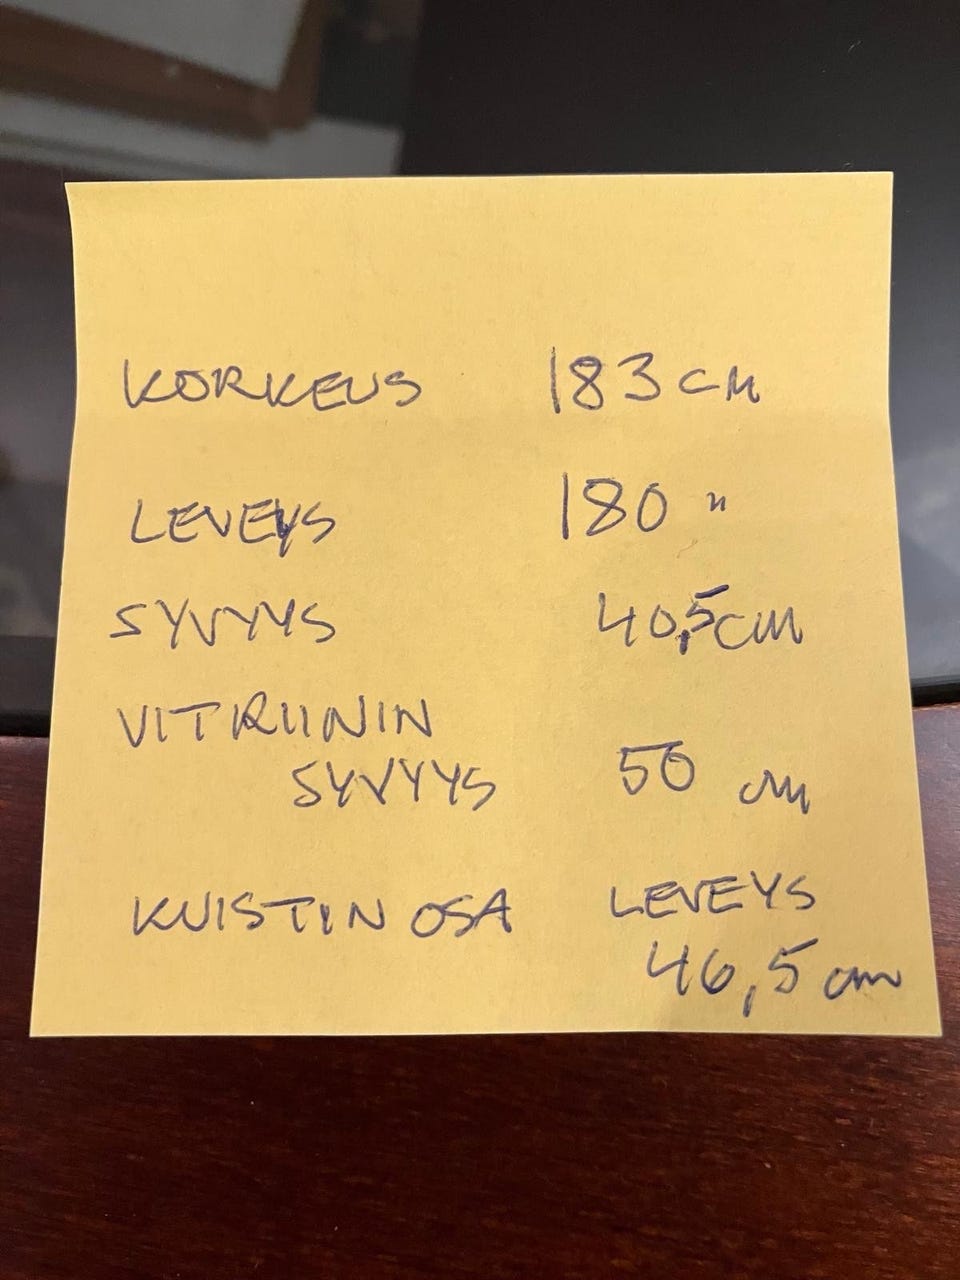 KORKEUS 183 CM
LEVEYS 180 "
SYVYYS 40,5 CM
VITRIININ
SYVYYS 50 cm
KUISTIN OSA LEVEYS
46,5 cm